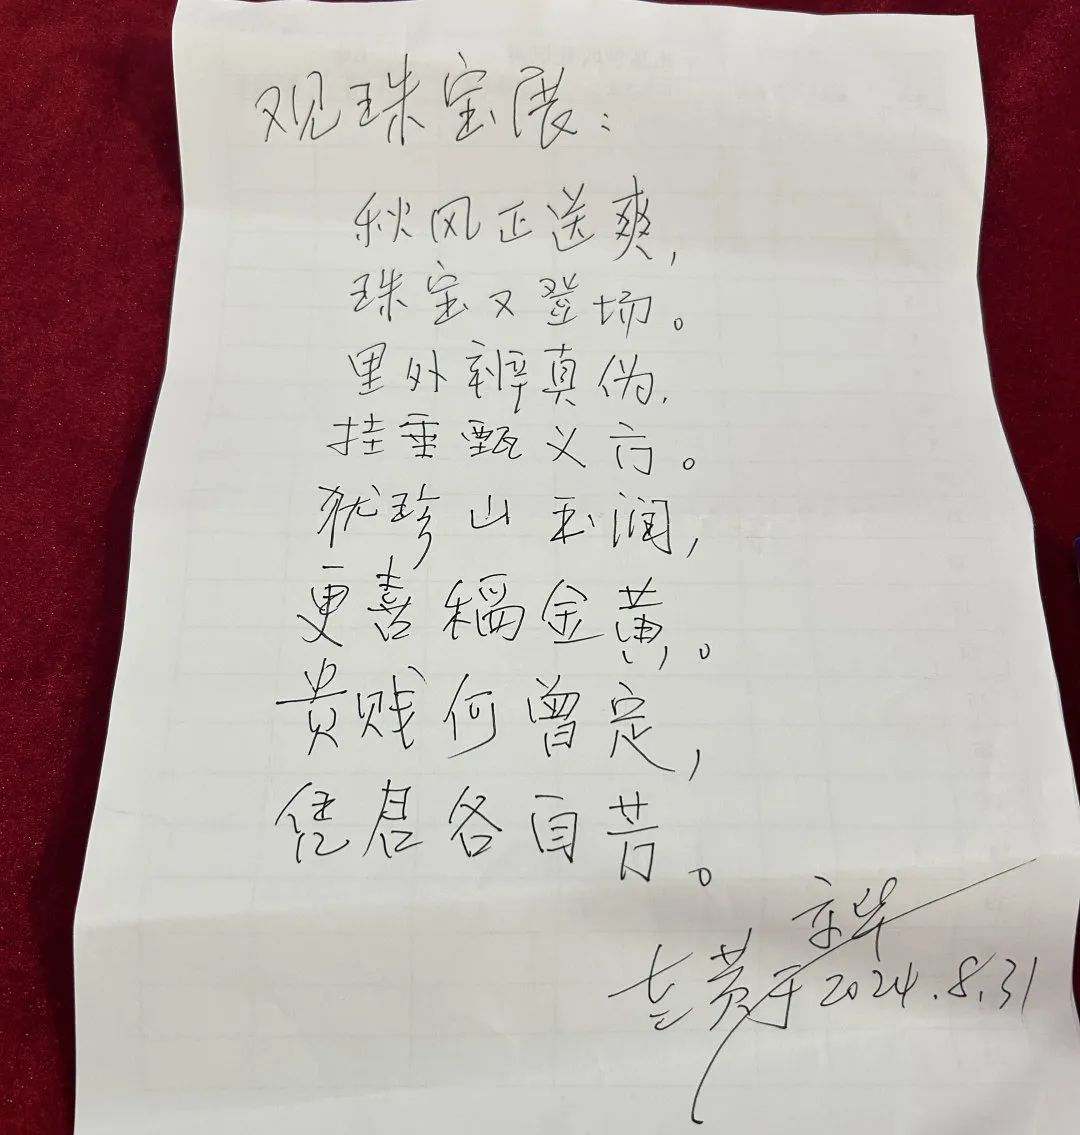 观珠宝展:
秋风正送爽,
珠宝又登场。
里外辨真伪.
挂垂甄义方。
犹珍山玉润,
更喜稻金黄。
贵贱何曾定,
凭君各自芳。
京华
于2024.8.31